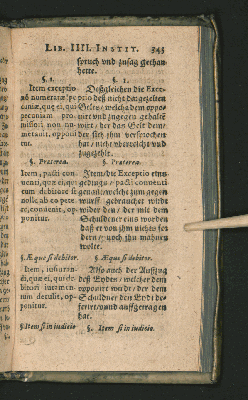 LIB. IIII. INSTIT. 543
spruch vnd zusag gethan
hette.
§. 1.
Item exceptio
nõ numeratæ pe
cuniæ, quæ ei, qui
pecuniam pro
misisset non nu
meratã, opponi
tur.
§. 1.
Deßgleichen die Exce
ptio deß nicht dargezelten
Geltes / welche dem oppo
nirt vnd zugegen gehalte
wirt / der das Gelt dem /
der sich jhm versprochen
hat / nicht vberreicht vnd
zugezehlt.
§. Præterea.
Item, pacti con
uenti, quæ ei, qui
cum debitore si
nolle ab eo pete
re, conuenit, op
ponitur.
§. Præterea.
Item / die Exceptio eins
gedings / pacti conuenti
genant / welche jhm gegen
wurff gebraucht wirdt
wider den / der mit dem
Schuldner eins worden
daß er von jhm nichts for
dern / noch jhn mahnen
wolte.
§. Æque si debitor.
Item, iusiuran
di, quæ ei, qui de
bitori iuramen
tum detulit, op
ponitur.
§. Æque si debitor.
Also auch der Außzug
deß Eydes / welcher dem
opponirt wirdt / der dem
Schuldner den Eydt de
ferirt / vnnd auffgetragen
hat.
§. Item si in iudicio
§. Item si in iudicio.